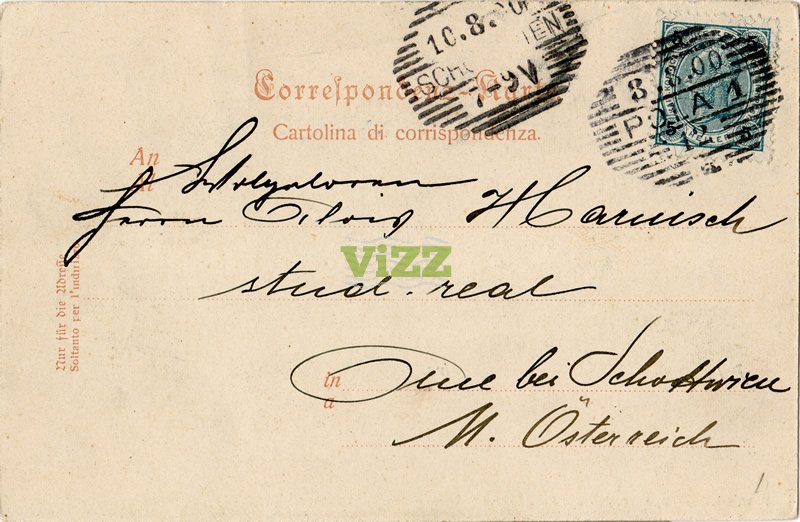 10.8.00
SCHOTTWIEN
7-9V
8.8.00
POLA 1
Correspondenz-Karte
Cartolina di corrispondenza.
An
Wolgeboren
Herrn Alois Harnisch
ViZZ
stud. real
in
a
Aue bei Schottwien
N. Österreich
Nur für die Adresse
Soltanto per l'indirizzo
1